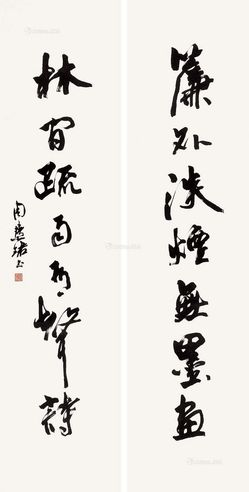 簾外淡煙無墨畫
林間疏雨有聲詩
周慧珺书